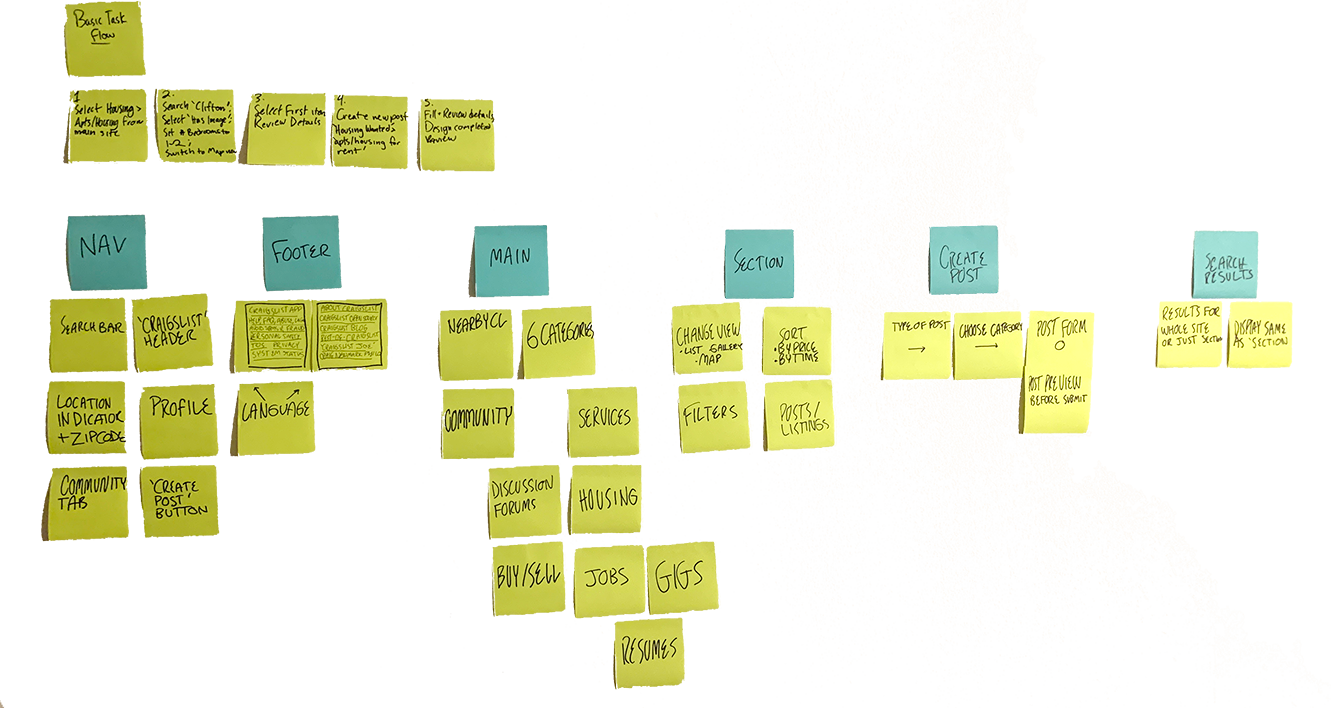 Basic Task
Flow
1
Select Housing >
Apts/Housing from
main site
2.
Search 'Clifton';
Select 'Has Image';
Set # Bedrooms to
1-2;
Switch to Map
3.
Select First item
Review Details
4.
Create new post
Housing Wanted
apts/housing for
rent'
5.
Fill + Review details
Design completed
NAV
SEARCH BAR
'CRAIGSLIST'
HEADER
LOCATION
INDICATOR
+ ZIPCODE
PROFILE
COMMUNITY
TAB
'CREATE
POST'
BUTTON
FOOTER
CRAIGSLIST APP
PERSONAL SAFETY
TOS PRIVACY
SYSTEM STATUS
ABOUT CRAIGSLIST
CRAIGSLIST BLOG
BEST-OF-CRAIGSLIST
LANGUAGE
MAIN
NEARBY CL
6 CATEGORIES
COMMUNITY
SERVICES
DISCUSSION
FORUMS
HOUSING
BUY/SELL
JOBS
GIGS
RESUMES
SECTION
CHANGE VIEW
• LIST GALLERY
• MAP
SORT
• BY PRICE
• BY TIME
FILTERS
POSTS/
LISTINGS
CREATE
POST
TYPE OF POST
→
CHOOSE CATEGORY
→
POST FORM
POST PREVIEW
BEFORE SUBMIT
SEARCH
RESULTS
RESULTS FOR
WHOLE SITE
OR JUST SECTION
DISPLAY SAME
AS 'SECTION'